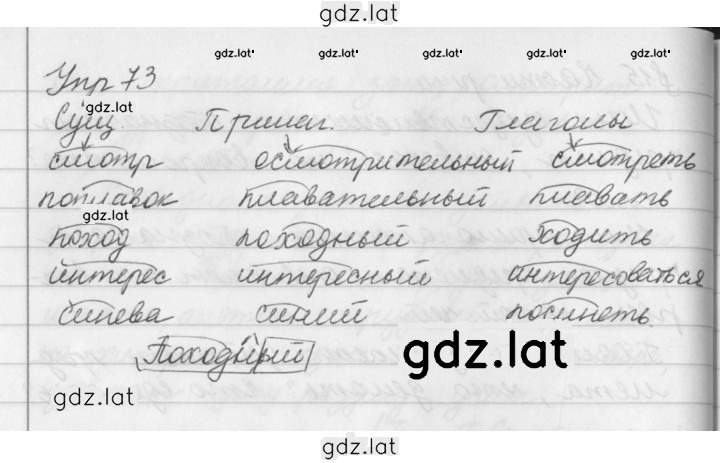 gdz.lat
gdz.lat gdz.lat gdz.lat gdz.lat gdz.lat
Упр 73
gdz.lat
Сущ. Прилаг. Глаголы
смотр осмотрительный смотреть
поплавок плавательный плавать
gdz.lat
поход походный ходить
интерес интересный интересоваться
синева синий посинеть.
Походный
gdz.lat
gdz.lat
gdz.lat